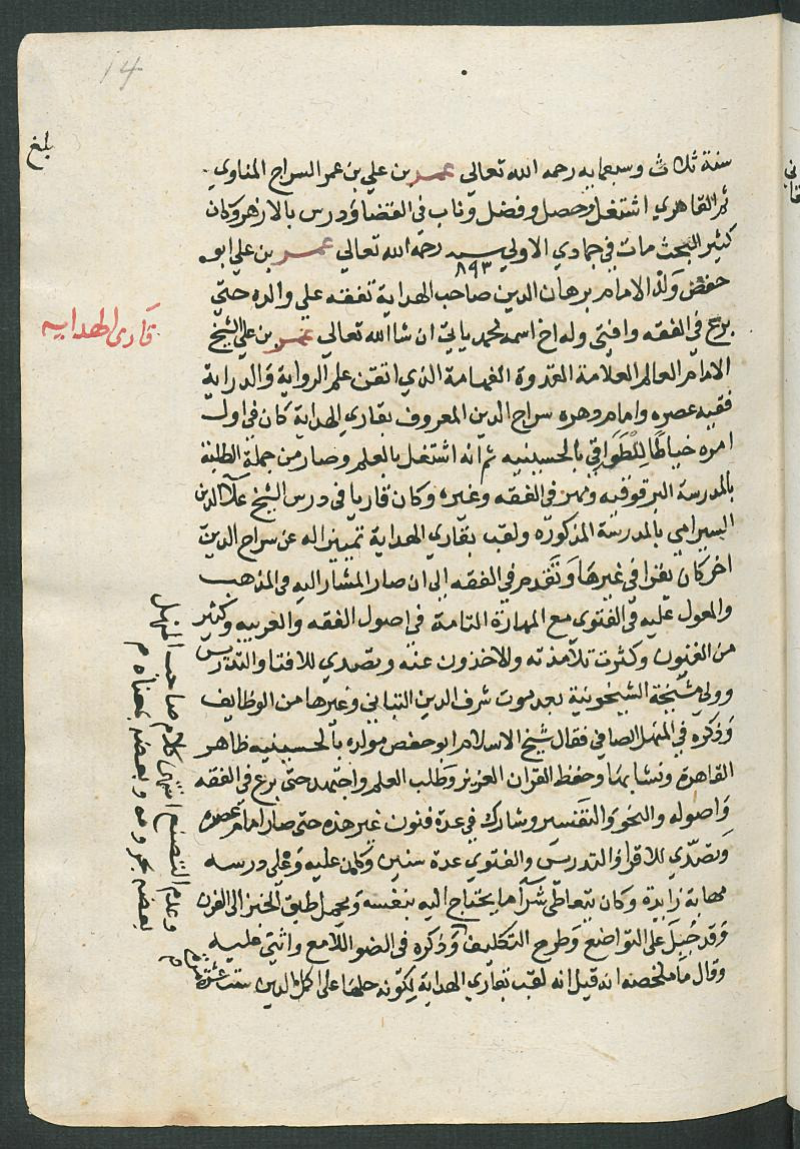 14
بلغ
سنة ثلاث وسبعمايه رحمه الله تعالي عمر بن علي بن عمر السراج المناوي
ثم القاهري اشتغل وحصل وفضل وناب في القضا ودرس بالازهر وكان
كثير البحث مات في جمادي الاولي سنه ٨٩٣ رحمه الله تعالي عمر بن علي ابو
حفص ولد الامام برهان الدين صاحب الهداية تفقه علي والده حتي
برع في الفقه وافتي وله اخ اسمه محمد ياتي ان شا الله تعالي عمر بن علي الشيخ
قارى الهدايه
الامام العالم العلامة القدوة الفهامة الذي اتقن علم الرواية والدراية
فقيه عصره وامام دهره سراج الدين المعروف بقاري الهداية كان في اول
امره خياطا للطواقي بالحسينيه ثم انه اشتغل بالعلم وصار من جملة الطلبة
بالمدرسة البرقوقيه ومهر في الفقه وغيره وكان قاريا في درس الشيخ علآ الدين
السيرامي بالمدرسة المذكوره ولقب بقاري الهداية تمييزا له عن سراج الدين
اخر كان يقرا في غيرها وتقدم في الفقه الي ان صار المشار اليه في المذهب
والمعول عليه في الفتوي مع المهارة التامة في اصول الفقه والعربيه وكثير
من الفنون وكثرت تلامذته والاخذون عنه وتصدي للافتا والتدريس
وولي مشيخة الشيخونية بعد موت شرف الدين التباني وغيرها من الوظايف
وذكره في المنهل الصافي فقال شيخ الاسلام ابو حفص مولده بالحسينيه ظاهر
القاهرة ونشا بها وحفظ القران العزيز وطلب العلم واجتهد حتي برع في الفقه
واصوله والنحو والتفسير وشارك في عدة فنون غير هذه حتي صار امام عصره
وتصدي للاقرا والتدريس والفتوي عدة سنين وكان عليه وعلي درسه
مهابة زايدة وكان يتعاطي شرآ ما يحتاج اليه بنفسه ويحمل طبق الخبز الي الفرن
وقد جبل علي التواضع وطرح التكليف وذكره في الضو اللامع واثني عليه
وقال ما ملخصه انه قيل انه لقب بقاري الهداية لكونه حلها علي اكمل الدين ست عشرة مرة
وعدم التصنع انتهى كلام صاحب المنهل
بعضه بحروفه وبعضه بمعناه م